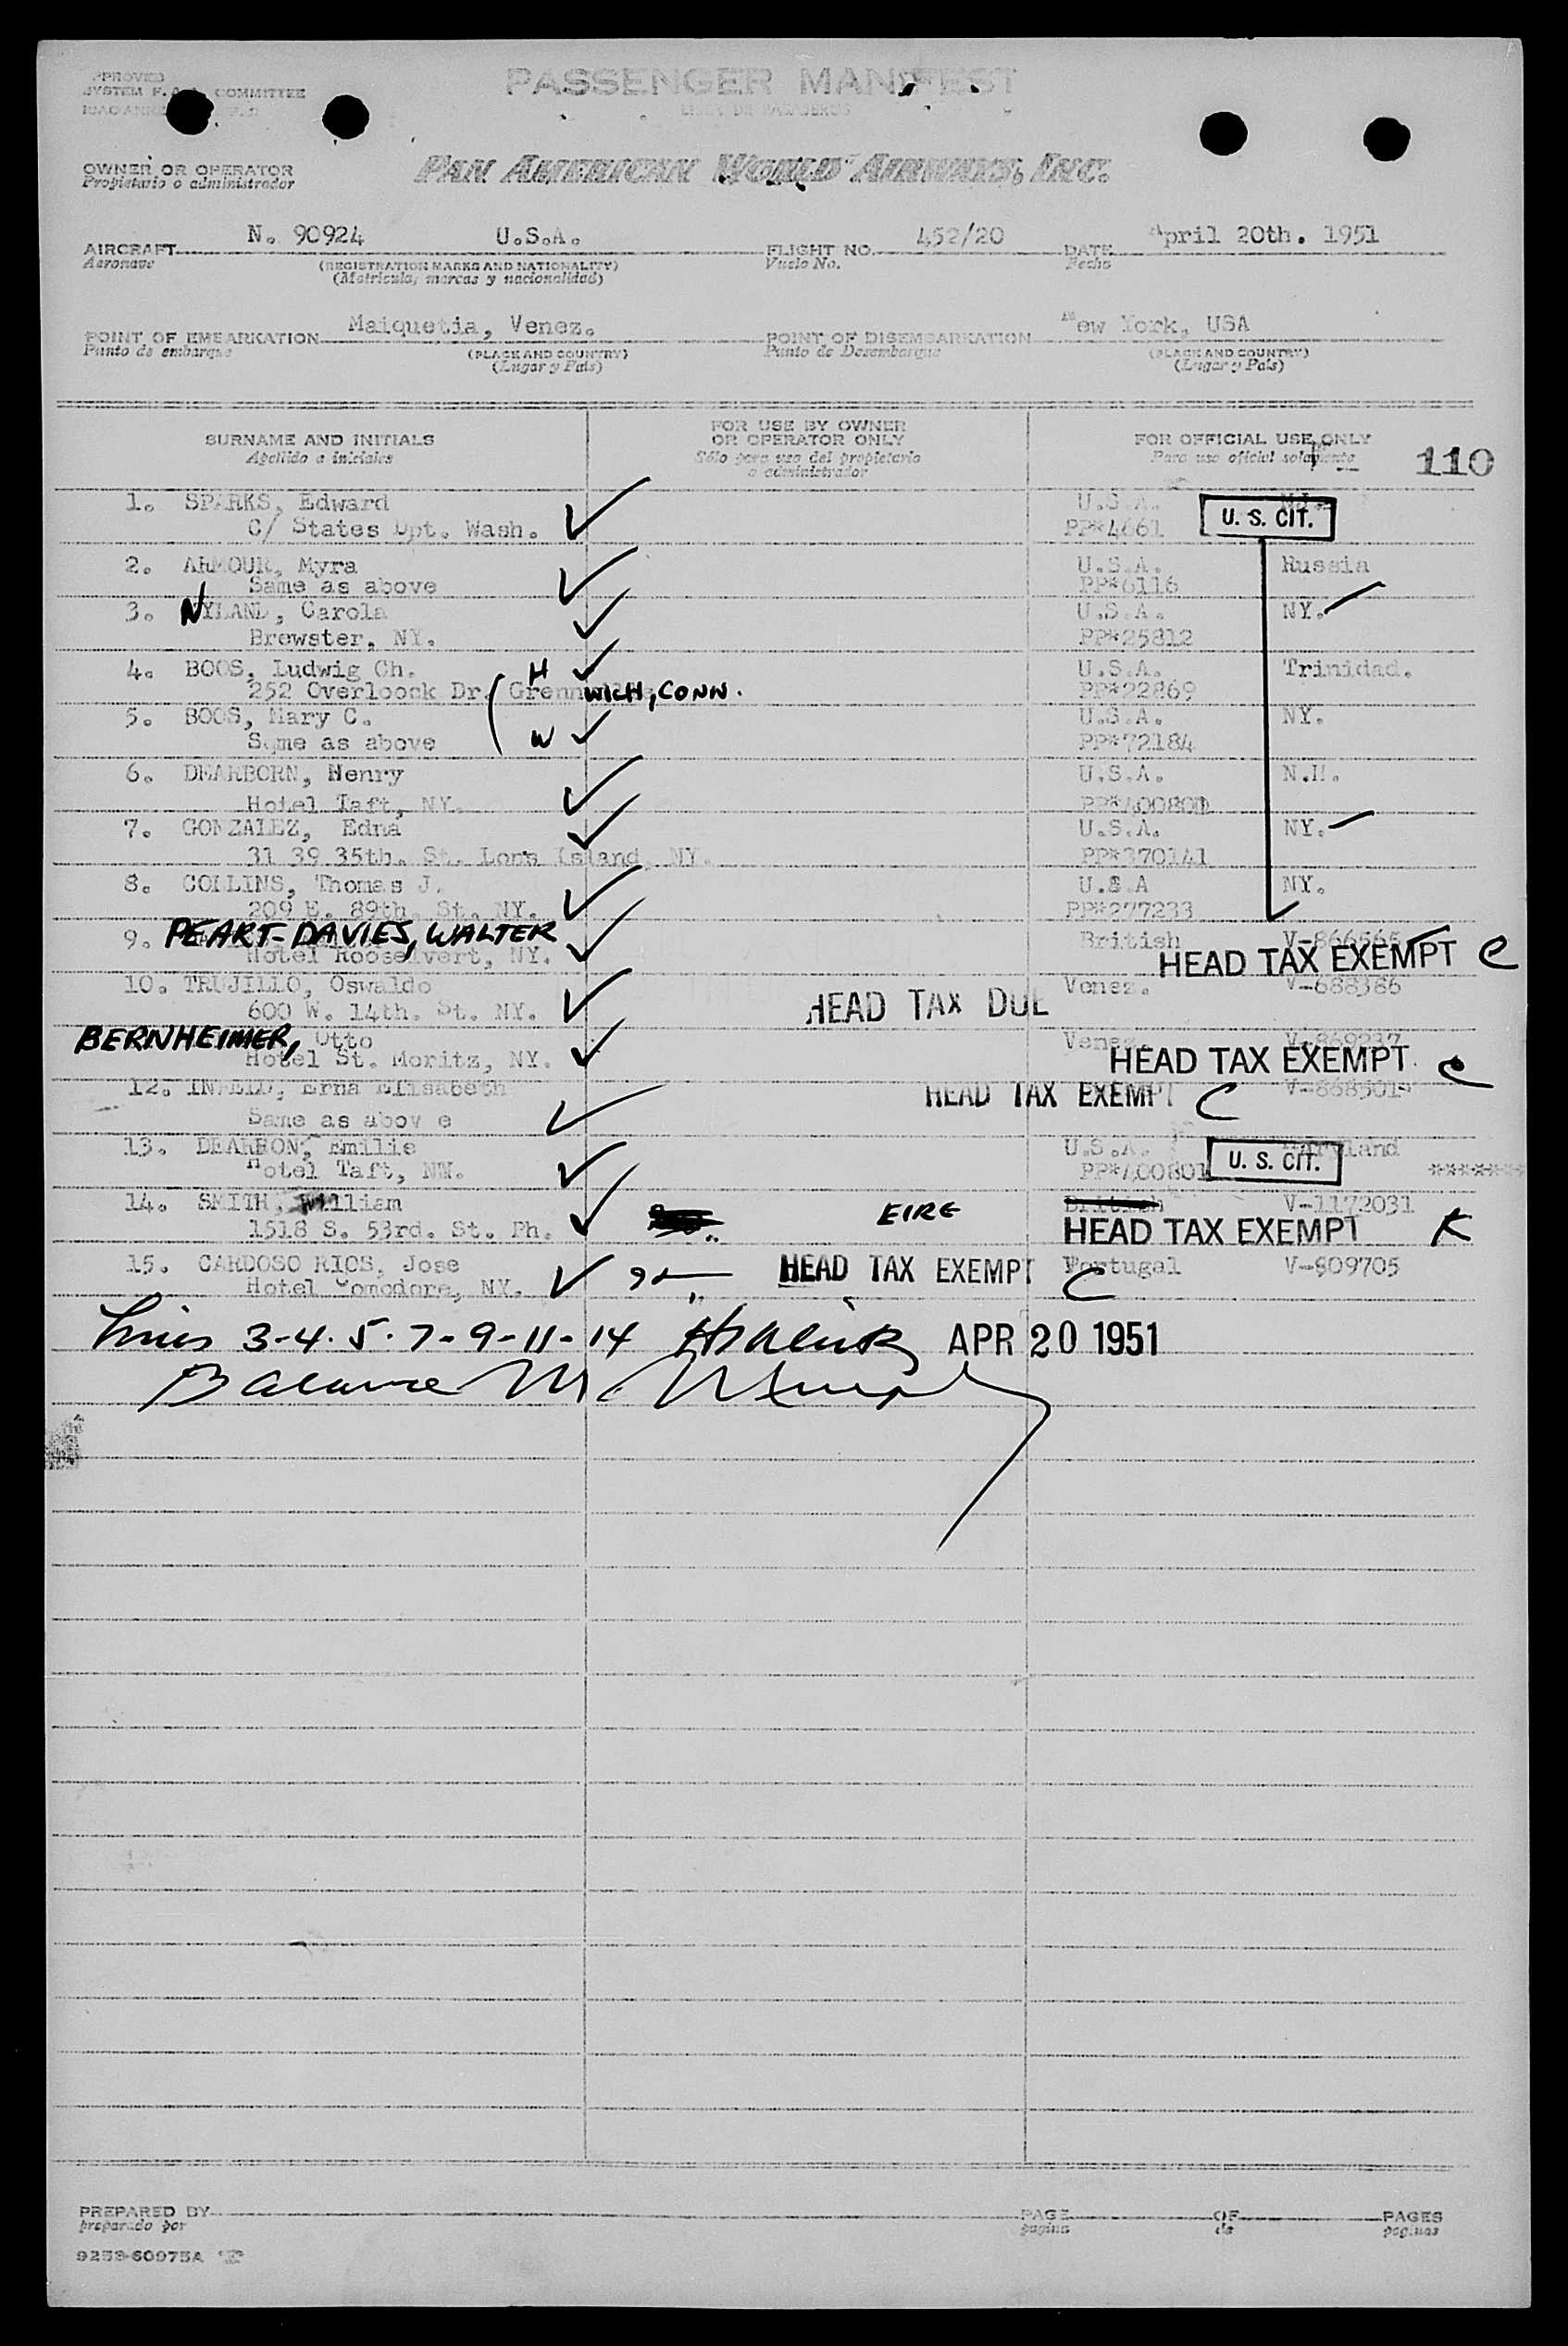 PASSENGER MANIFEST
LISTA DE PASAJEROS
APPROVED
SYSTEM F. COMMITTEE
OWNER OR OPERATOR
Propietario o administrador
PAN AMERICAN WORLD AIRWAYS, INC.
AIRCRAFT N. 90924 U.S.A. FLIGHT NO. 452/20 DATE April 20th. 1951
Aeronave (REGISTRATION MARKS AND NATIONALITY) Vuelo No. Fecha
(Matricula, marcas y nacionalidad)
POINT OF EMBARKATION Maiquetia, Venez. POINT OF DISEMBARKATION New York, USA
Punto de embarque (PLACE AND COUNTRY) Punto de Desembarque (PLACE AND COUNTRY)
(Lugar y Pais) (Lugar y Pais)
SURNAME AND INITIALS FOR USE BY OWNER OR OPERATOR ONLY FOR OFFICIAL USE ONLY 110
Apellido a iniciales Sólo para uso del propietario o administrador Para uso oficial solamente
1. SPARKS, Edward U.S.A. Md.
C/ States Dpt. Wash. PP*4661 U. S. CIT.
2. ARMOUR, Myra U.S.A. Russia
Same as above PP*6116
3. NYLAND, Carola U.S.A. NY.
Brewster, NY. PP*25812
4. BOOS, Ludwig Ch. H U.S.A. Trinidad.
252 Overloock Dr. Greenn WICH, CONN. PP*22869
5. BOOS, Mary C. U.S.A. NY.
Same as above W PP*72184
6. DEARBORN, Henry U.S.A. N.H.
Hotel Taft, NY. PP*400801
7. GONZALEZ, Edna U.S.A. NY.
31 39 35th. St. Long Island, NY. PP*370141
8. COLLINS, Thomas J. U.S.A NY.
209 E. 89th. St. NY. PP*277233
9. PEART-DAVIES, WALTER British V-866565
Hotel Roosevert, NY. HEAD TAX EXEMPT C
10. TRUJILLO, Oswaldo Venez. V-688386
600 W. 14th. St. NY. HEAD TAX DUE
BERNHEIMER, Otto Venez. V-869237
Hotel St. Moritz, NY. HEAD TAX EXEMPT C
12. Erna Elisabeth HEAD TAX EXEMPT C
Same as abov e
13. DEARBON, Emilie U.S.A. Maryland
Hotel Taft, NY. PP*400801 U. S. CIT. *******
14. SMITH, William EIRE British V-1172031
1518 S. 53rd. St. Ph. HEAD TAX EXEMPT K
15. CARDOSO RIOS, Jose HEAD TAX EXEMPT C Portugal V-809705
Hotel Comodore, NY.
Lines 3-4-5-7-9-11-14 APR 20 1951
Balance
PREPARED BY PAGE OF PAGES
preparado por pagina de paginas
9253-60975A